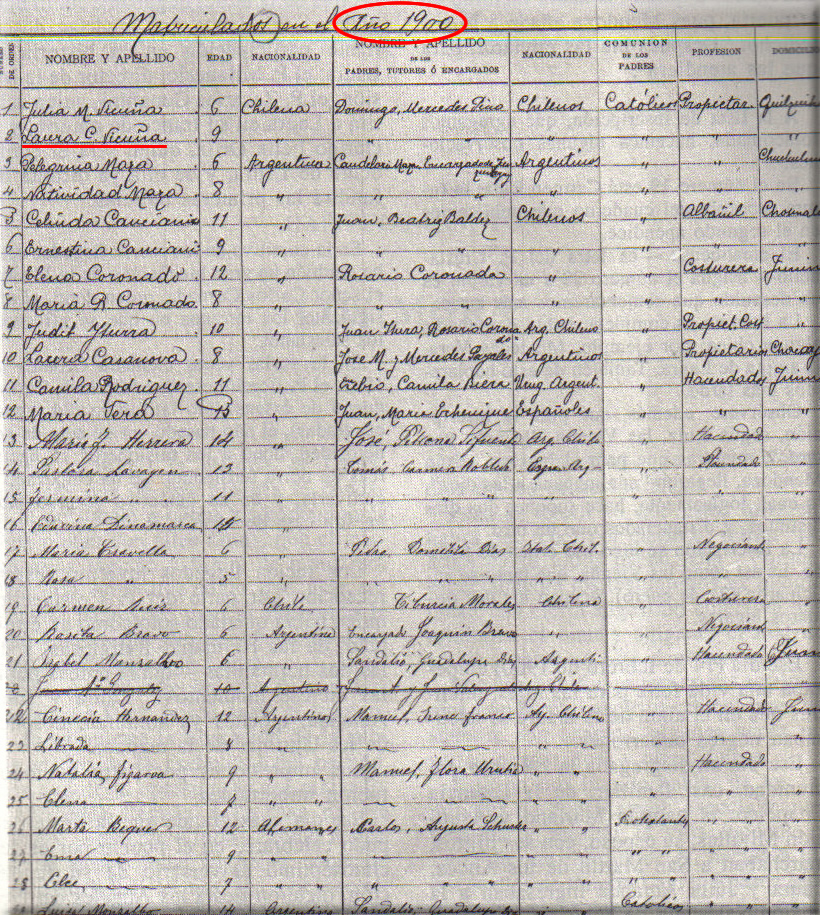 Matriculados en el Año 1900
DE ORDEN NOMBRE Y APELLIDO EDAD NACIONALIDAD NOMBRE Y APELLIDO DE LOS PADRES, TUTORES Ó ENCARGADOS NACIONALIDAD COMUNION DE LOS PADRES PROFESION DOMICILIO
1 Julia M. Vicuña 6 Chilena Domingo, Mercedes Pino Chilenos Católicos Propietar.
2 Laura C. Vicuña 9 " " " " " " "
3 Pelegrina Maza 6 Argentina Candelara Maza, Encargado Argentinos " "
4 Natividad Maza 8 " " " " " "
5 Celinda Canciani 11 " Juan, Beatriz Baldez Chilenos " Albañil Chosmal
6 Ernestina Canciani 9 " " " " "
7 Elena Coronado 12 " Rosario Coronada " " Costurera Junin
8 Maria R. Coronado 8 " " " " " " "
9 Judit Ysurra 10 " Juan Isura, Rosario Coronado Arg. Chileno " Propiet. Cost
10 Laura Casanova 8 " Jose M. y Mercedes Argentinos " Propietarios
11 Camila Rodriguez 11 " Camila Riera Urug. Argent. " Hacendados Junin
12 Maria Vera 13 " Juan, Maria Echenique Españoles " " "
13 Maria J. Herrera 14 " José, Arg. Chile " Hacendad "
14 Pastora Lavagen 13 " Tomás Carmen Robles Arg. "
15 Fermina " " 11 " " " " " " "
16 Dinamarca 15 "
17 Maria Travella 6 " Pedro Domitila Dias Ital. Chil. " Negociant
18 Rosa " 5 " " " " " " " "
19 Carmen Ruiz 6 Chile Tiburcia Morales Chilena " Costurera
20 Rosita Bravo 6 Argentina Encargado Joaquin Bravo " " Negociant
21 Isabel Monsalbo 6 " Sandalio, Guadalupe Diaz Argenti. " Hacendado Junin
22 10 Argentina
22 Cinecia Hernandez 12 Argentinos Manuel, Irene Franco Arg. Chileno " Hacendado Junin
23 Librada 8 " " " " "
24 Natalia Figaroa 9 " " Manuel, Flora Urrutia " " " Hacendado
25 Elena " " " " "
26 Marta Bequer 12 Alemanes Carlos, Augusta " " Protestantes "
27 Ema 9 " " " " "
28 Elce 7 " " " " "
Luisa Monsalbo 14 Argentina Sandalio, Guadalupe Católico